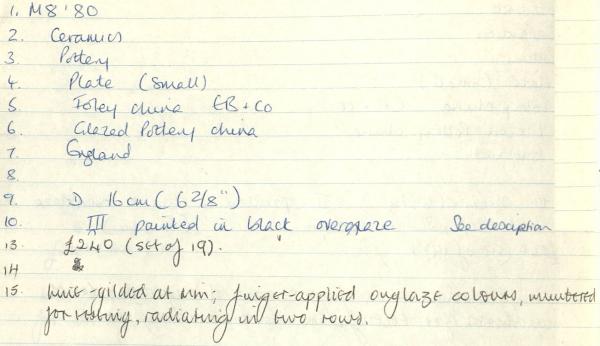 1. M8'80
2. Ceramics
3. Pottery
4. Plate (Small)
5 Foley china EB + CO
6. Glazed Pottery china
7. England
8.
9. D 16cm (6 2/8")
10. III painted in black overglaze See description
13. £240 (set of 19).
14
15. Line-gilded at rim; finger-applied onglaze colours, numbered
for testing, radiating in two rows.